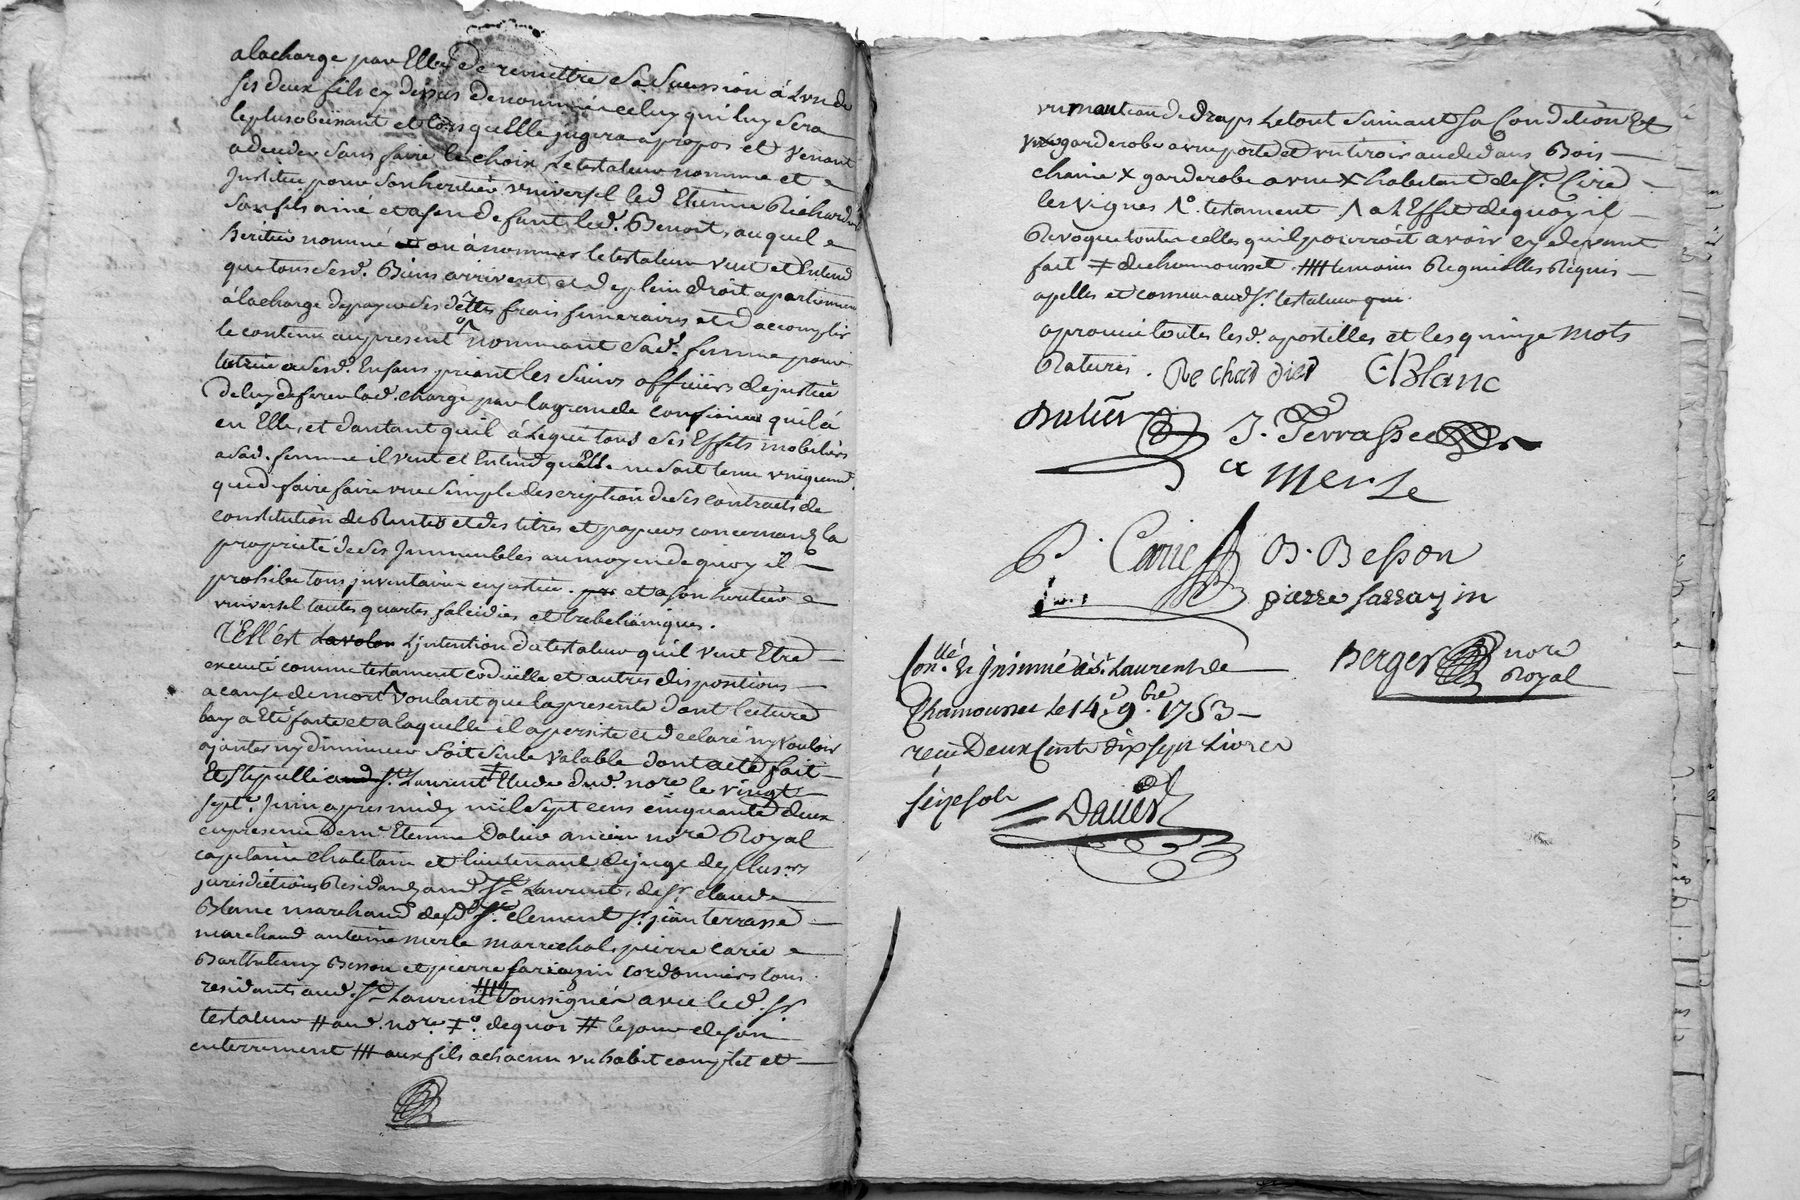 a la charge par Elle de remettre Sa Sucession a L'un de
ses deux fils cy dessus denommé a celuy qui luy Sera
le plus obeissant et lors quellle jugera apropos et venant
a deceder sans faire le choix Le testateur nomme et
Institue pour Son heritier vniversel led Etienne Richard
Son fils ainé et a son defunt led. Benoit, auquel
heritier nommé ou a nommer le testateur veut et Entend
que tous Sesd. Biens arrivent et de plein droit apartiennent
a la charge de payer Ses dettes frais funeraires et d'accomplir
le contenu au present nommant Sad. femme pour
tutrice a Sesd. Enfans priant les Siurs officiers de justice
de luy deferer lad. charge par la grande confiance quil a
en Elle, et d'autant quil a Legué tous Ses Effets mobiliers
a Sad. femme il veut et Entend quElle ne Soit tenue vniquemt.
que de faire faire vne Simple description de Ses contracts de
constitution de Rentes et des titres et papiers concernant la
proprieté de Ses Immeubles au moyen de quoy il
prohibe tous jnventaire en justice. et a Son heritier
vniversel toutes quartes falcidies et trebellianiques.
Q'Ell'est La volon L'jntention du testateur qu'il veut Etre
executé comme testament codicille et autres dispositions
a cause de mort Voulant que la presente dont lecture
luy a Eté faite et a laquelle il a persisté et declaré ny vouloir
ajouter ny diminuer Soit Seule Valable dont acte fait
Et Stipullé aud St. Laurent Etude dud. nore. le vingt
sept. Juin apres midy mil Sept cens cinquante deux
en presence de mr. Etienne Dalier ancien nore. Royal
capitaine chatelain et lieutenant de juge de plusrs.
jurisdictions Residant aud St. Laurent, de sr. claude
Blanc marchand dud. St. clement sr. jean terrasse
marchand antoine merle marrechal, pierre carié
Barthelemy Besson et pierre Sarrazin cordonniers tous
residants aud. St. Laurent Soussignés avec led. sr.
testateur # aud. nore. ≠ de quoi # le jour de son
enterrement ### aux fils a chacun vn habit complet et
vn manteau de draps Le tout Suivant Sa Condition Et
garderobe a vne porte et vn tiroir au dedans Bois
chaine X garderobe avec X habitant de St. Cire
les vignes 1o. testament. Λ a L'Effet de quoy il
Revoque toutes celles qu'il pourroit avoir cy devant
fait ≠ de chamousset. #### temoins Requis
apellés et comme aud Sr. testateur que.
aprouvé toutes lesd. apostilles et les quinze mots
Raturés. Re chad dier C. Blanc
Dalier J. Terrasse
a Merle
P. Carié B. Besson
pierre Sarrazin
Berger nore
Royal
Conllé. & jnsinué a St. Laurent de
Chamousset Le 14e. 9bre 1753
recu Deux Cents dix sept Livres
seize sols
Davier